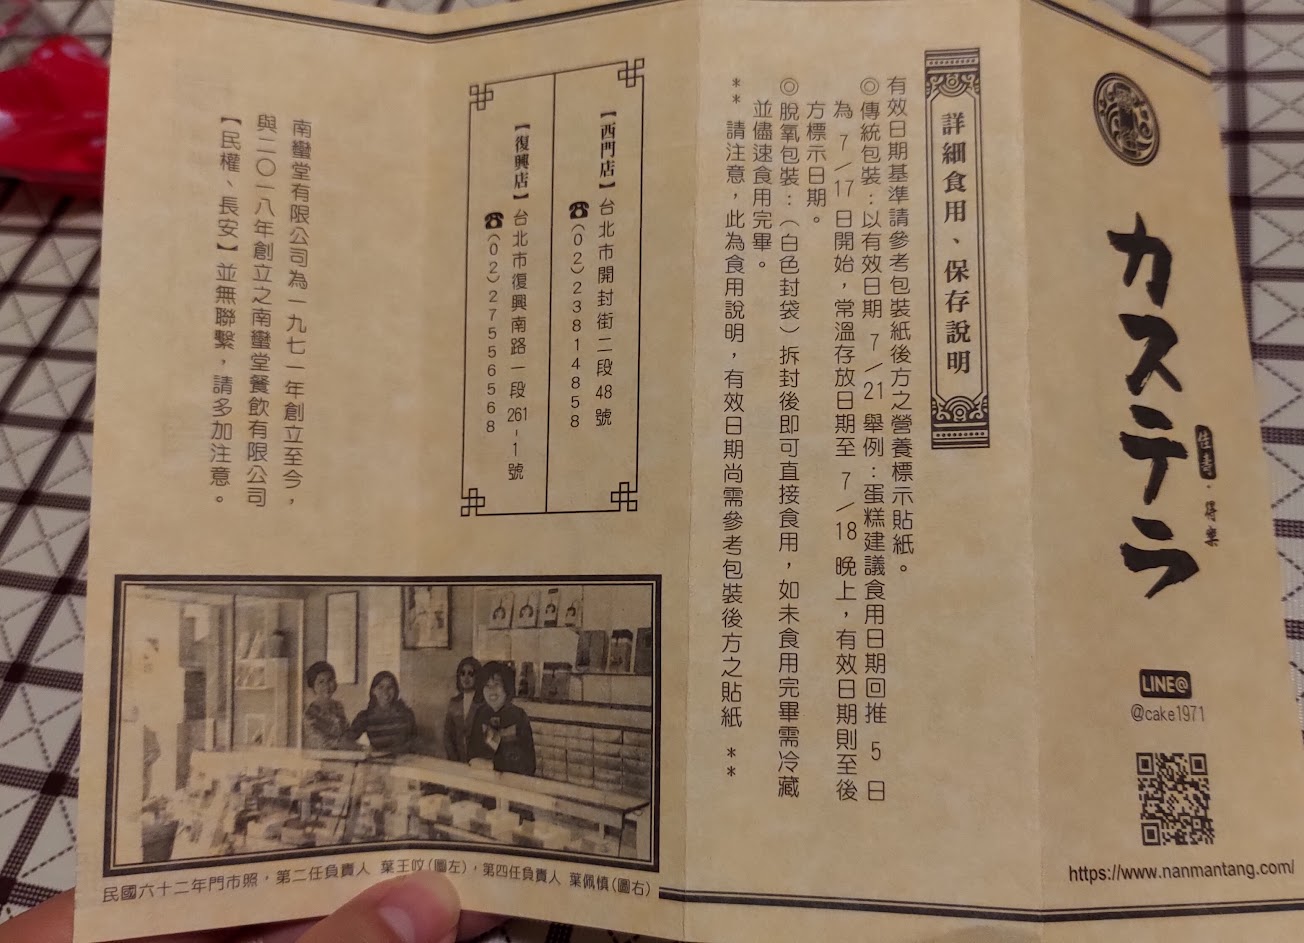 カステラ
佳壽・得樂
LINE@
@cake1971
https://www.nanmantang.com/
詳細食用、保存說明
有效日期基準請參考包裝紙後方之營養標示貼紙。
◎傳統包裝：以有效日期 7／21 舉例：蛋糕建議食用日期回推 5 日
為 7／17日開始，常溫存放日期至 7／18 晚上，有效日期則至後
方標示日期。
◎脫氧包裝：（白色封袋）拆封後即可直接食用，如未食用完畢需冷藏
並儘速食用完畢。
**請注意，此為食用說明，有效日期尚需參考包裝後方之貼紙 **
【西門店】台北市開封街二段48號
☎(02)23814858
【復興店】台北市復興南路一段261-1號
☎(02)27556568
南蠻堂有限公司為一九七一年創立至今，
與二〇一八年創立之南蠻堂餐飲有限公司
【民權、長安】並無聯繫，請多加注意。
民國六十二年門市照，第二任負責人 葉王(圖左)，第四任負責人 葉佩慎(圖右)